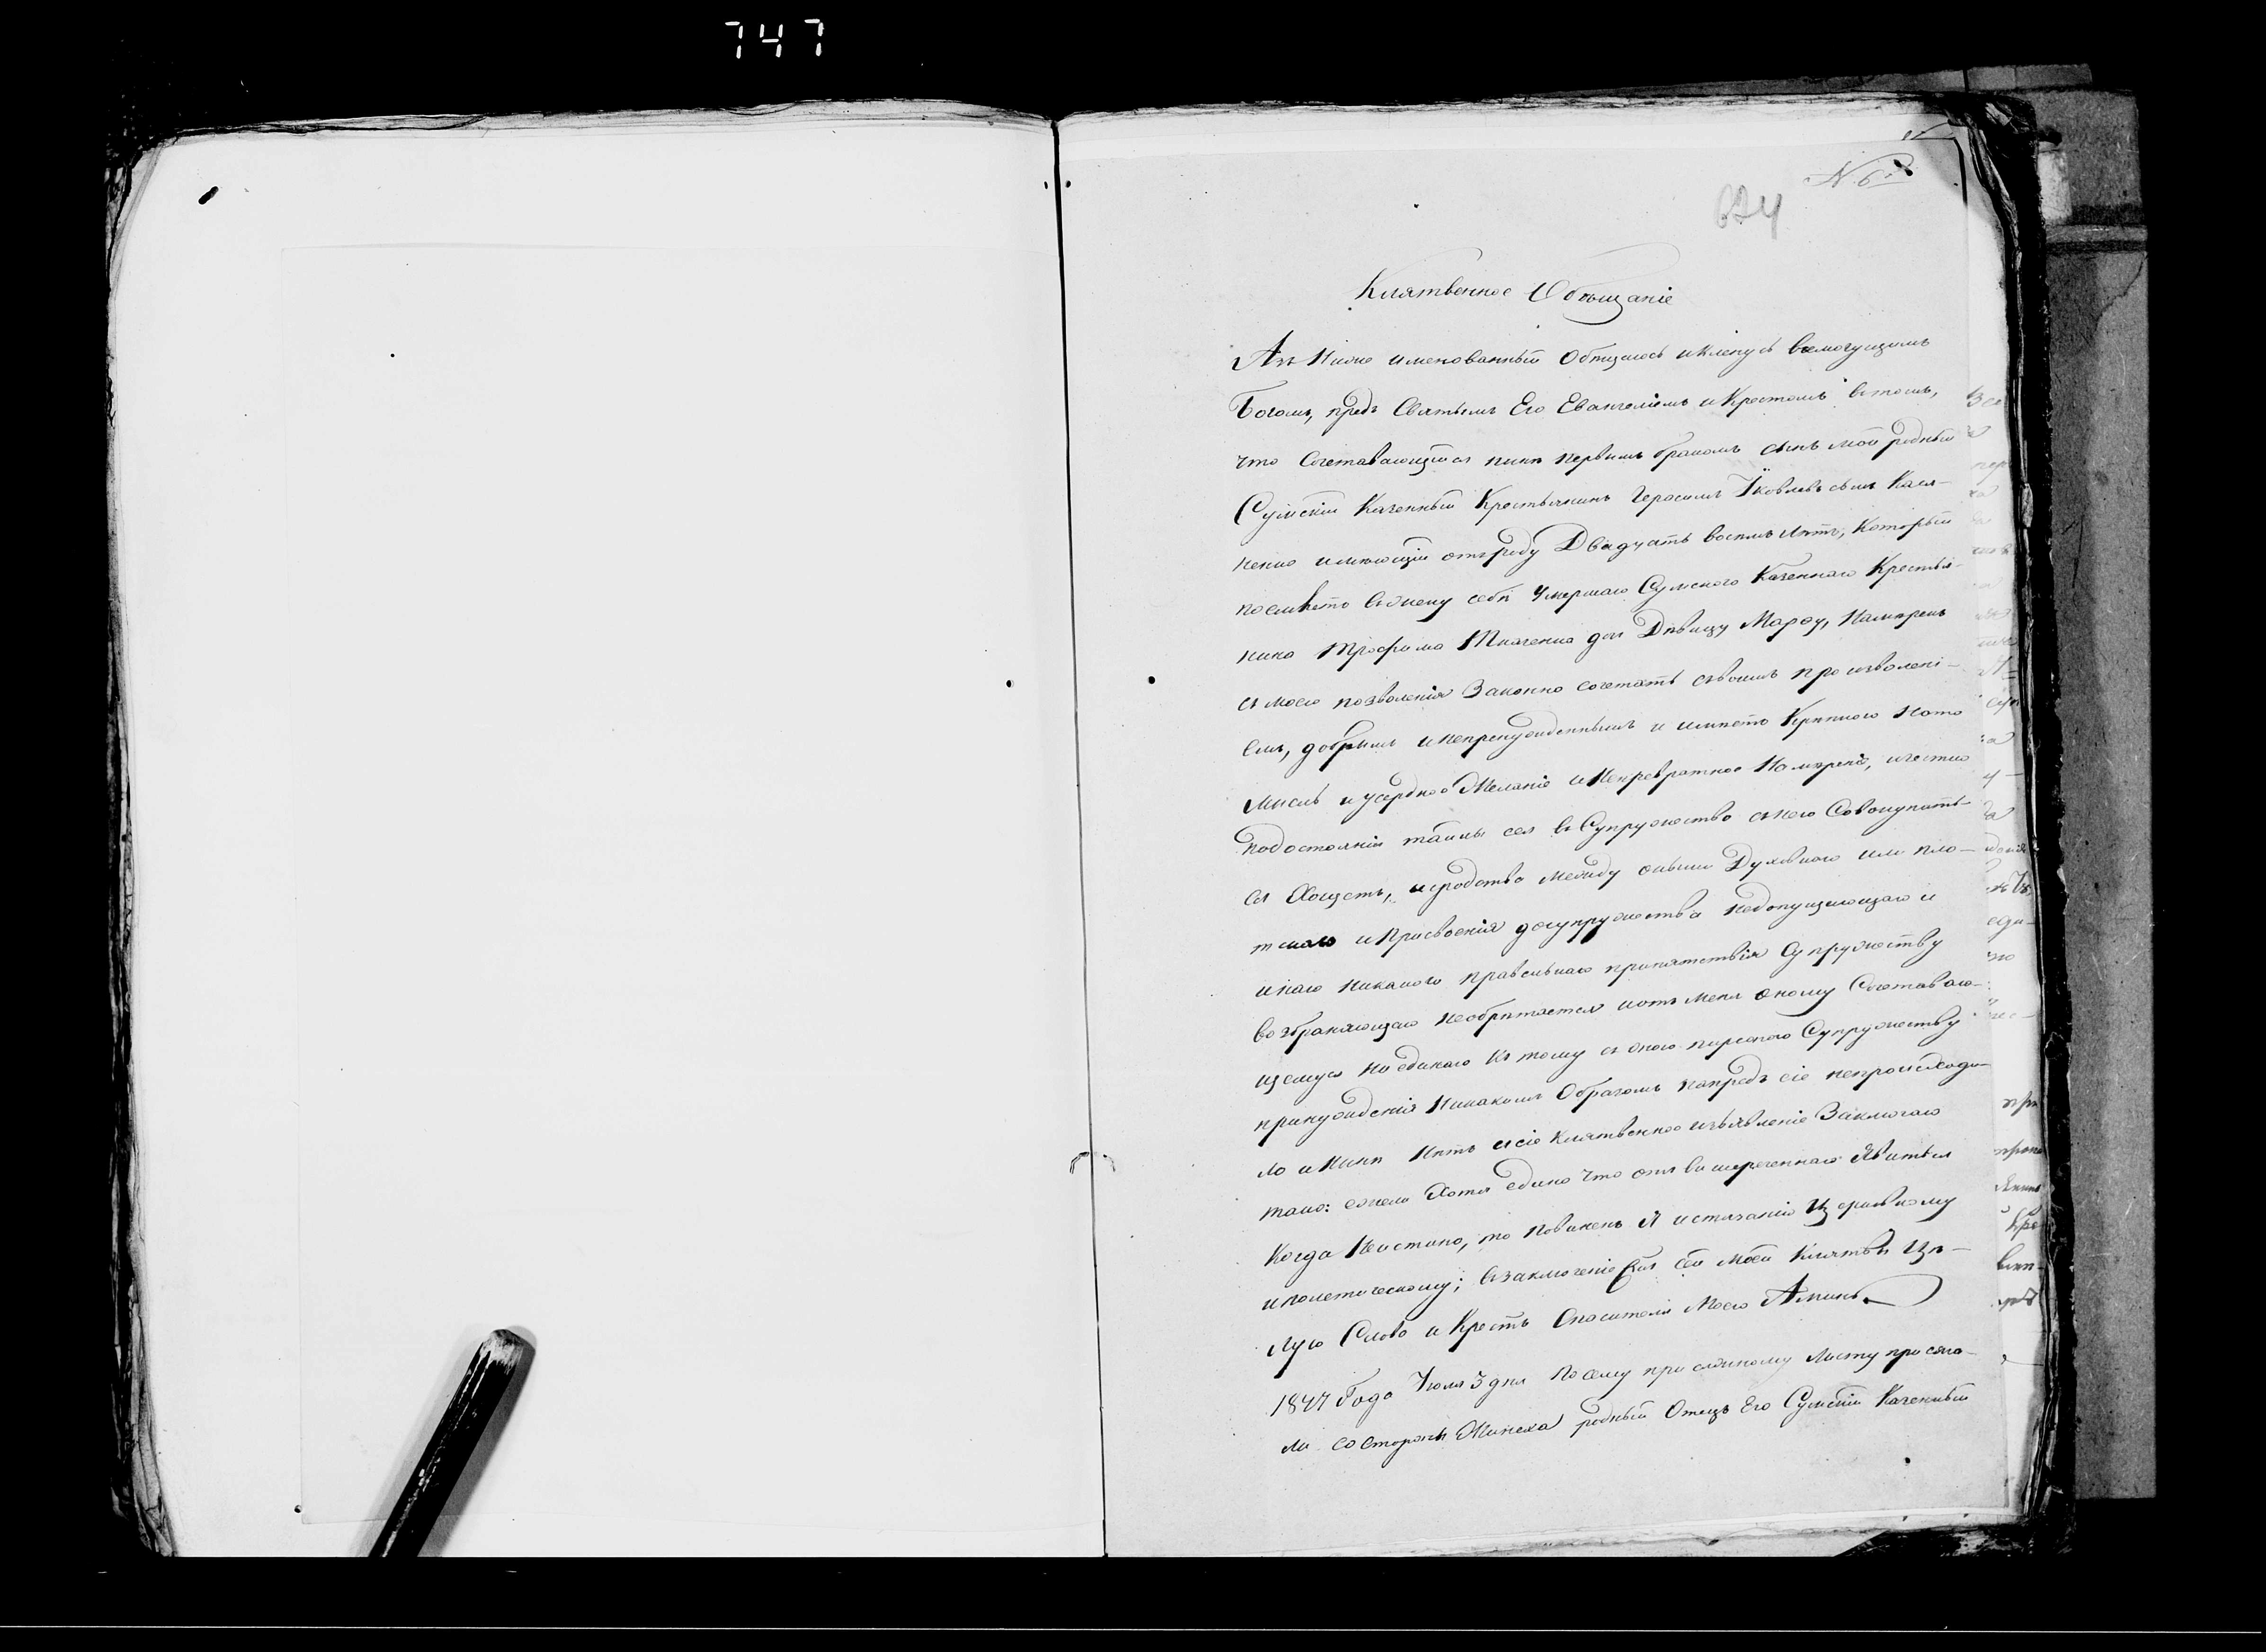 747
N. 6й
624
Клятвенное Обѣщаніе
Азъ Ниже именованный Обѣщаюсь и кленусь всемогущимъ
Богомъ, предъ Святымъ Его Евангеліемъ и Крестомъ втомъ,
что Сочетавающійся нинѣ первымъ бракомъ сынъ мой родный
Сумскій Казенный Крестьянинъ Герасимъ Яковлевъ сынъ
ненко имѣющій отъ роду Двадцать восемь лѣтъ, Который
поемлетъ въ жену себѣ Умершаго Сумского Казеннаго Крестья-
нина Трофима Ткаченка дочь Дѣвицу Марѳу, Намѣренъ
съ моего позволенія Законно сочетать съ своимъ произволені-
емъ, добрымъ и непренужденнымъ и имѣетъ Крѣпкую Нато
мысль и усердное Желаніе и Непревратное Намѣреніе, и честно
подостоянію тайны сея въ Супружество съ нею Совокупить-
ся Хощетъ, и сродства между оными Духовнаго или пло-
тскаго и Присвоенія до супружества недопущающаго и
инаго никакого правильнаго припятствія Супружеству
возбраняющаго необрѣтается и отъ меня оному Сочетаваю-
щемуся ни единаго къ тому съ оною персоною Супружеству
принужденія Никакимъ Образомъ напредъ сіе непроисходи-
ло и Нинѣ Нѣтъ и сіе Клятвенное изъявленіе Заключаю
тако: ежели Хотя едино что отъ вишереченнаго Явиться
Когда Неистино, то повиненъ Я истязанію Церковному
и политическому; въ заключеніе сей моей Клятвы Цѣ-
лую Слова и Крестъ Спасителя Моего Аминь.
1847 Года Іюля 3 дня По сему присяжному Листу присяга-
ли со стороны Жениха родный Отецъ Его Сумскій Казенный